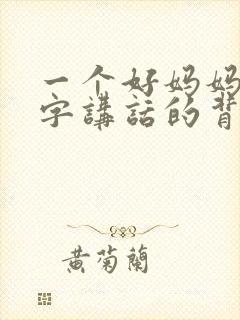 一个好妈妈
字講話的背
黄菊蘭